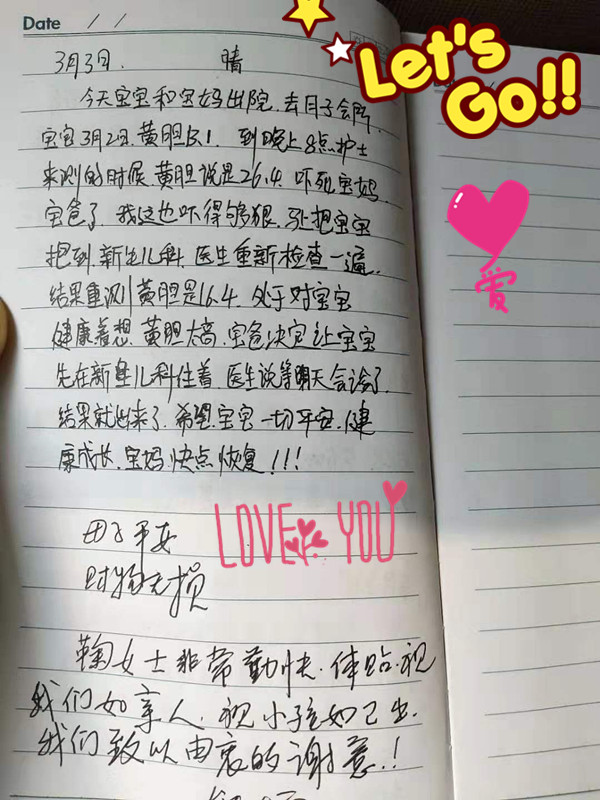 Date / /
Let's
Go!!
3月3日. 晴
今天宝宝和宝妈出院.去月子会所.
宝宝3月2日.黄胆13.1. 到晚上8点护士
来测的时候.黄胆说是26.4.吓死宝妈.
宝爸了.我这也吓得够狠.马上把宝宝
抱到.新生儿科.医生重新检查一遍.
结果重测黄胆是16.4.处于对宝宝
健康着想.黄胆太高.宝爸决定让宝宝
先在新生儿科住着.医生说等明天会诊了.
结果就出来了.希望宝宝一切平安.健
康成长.宝妈.快点恢复!!!
爱
LOVE YOU
母子平安
财物无损
鞠女士非常勤快.体贴.视
我们如亲人.视小孩如己出.
我们致以由衷的谢意.!